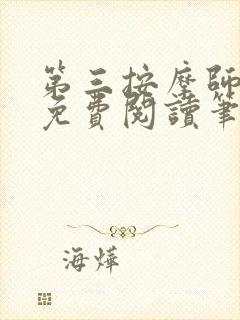 第三按摩師
免費閱讀筆
海燁